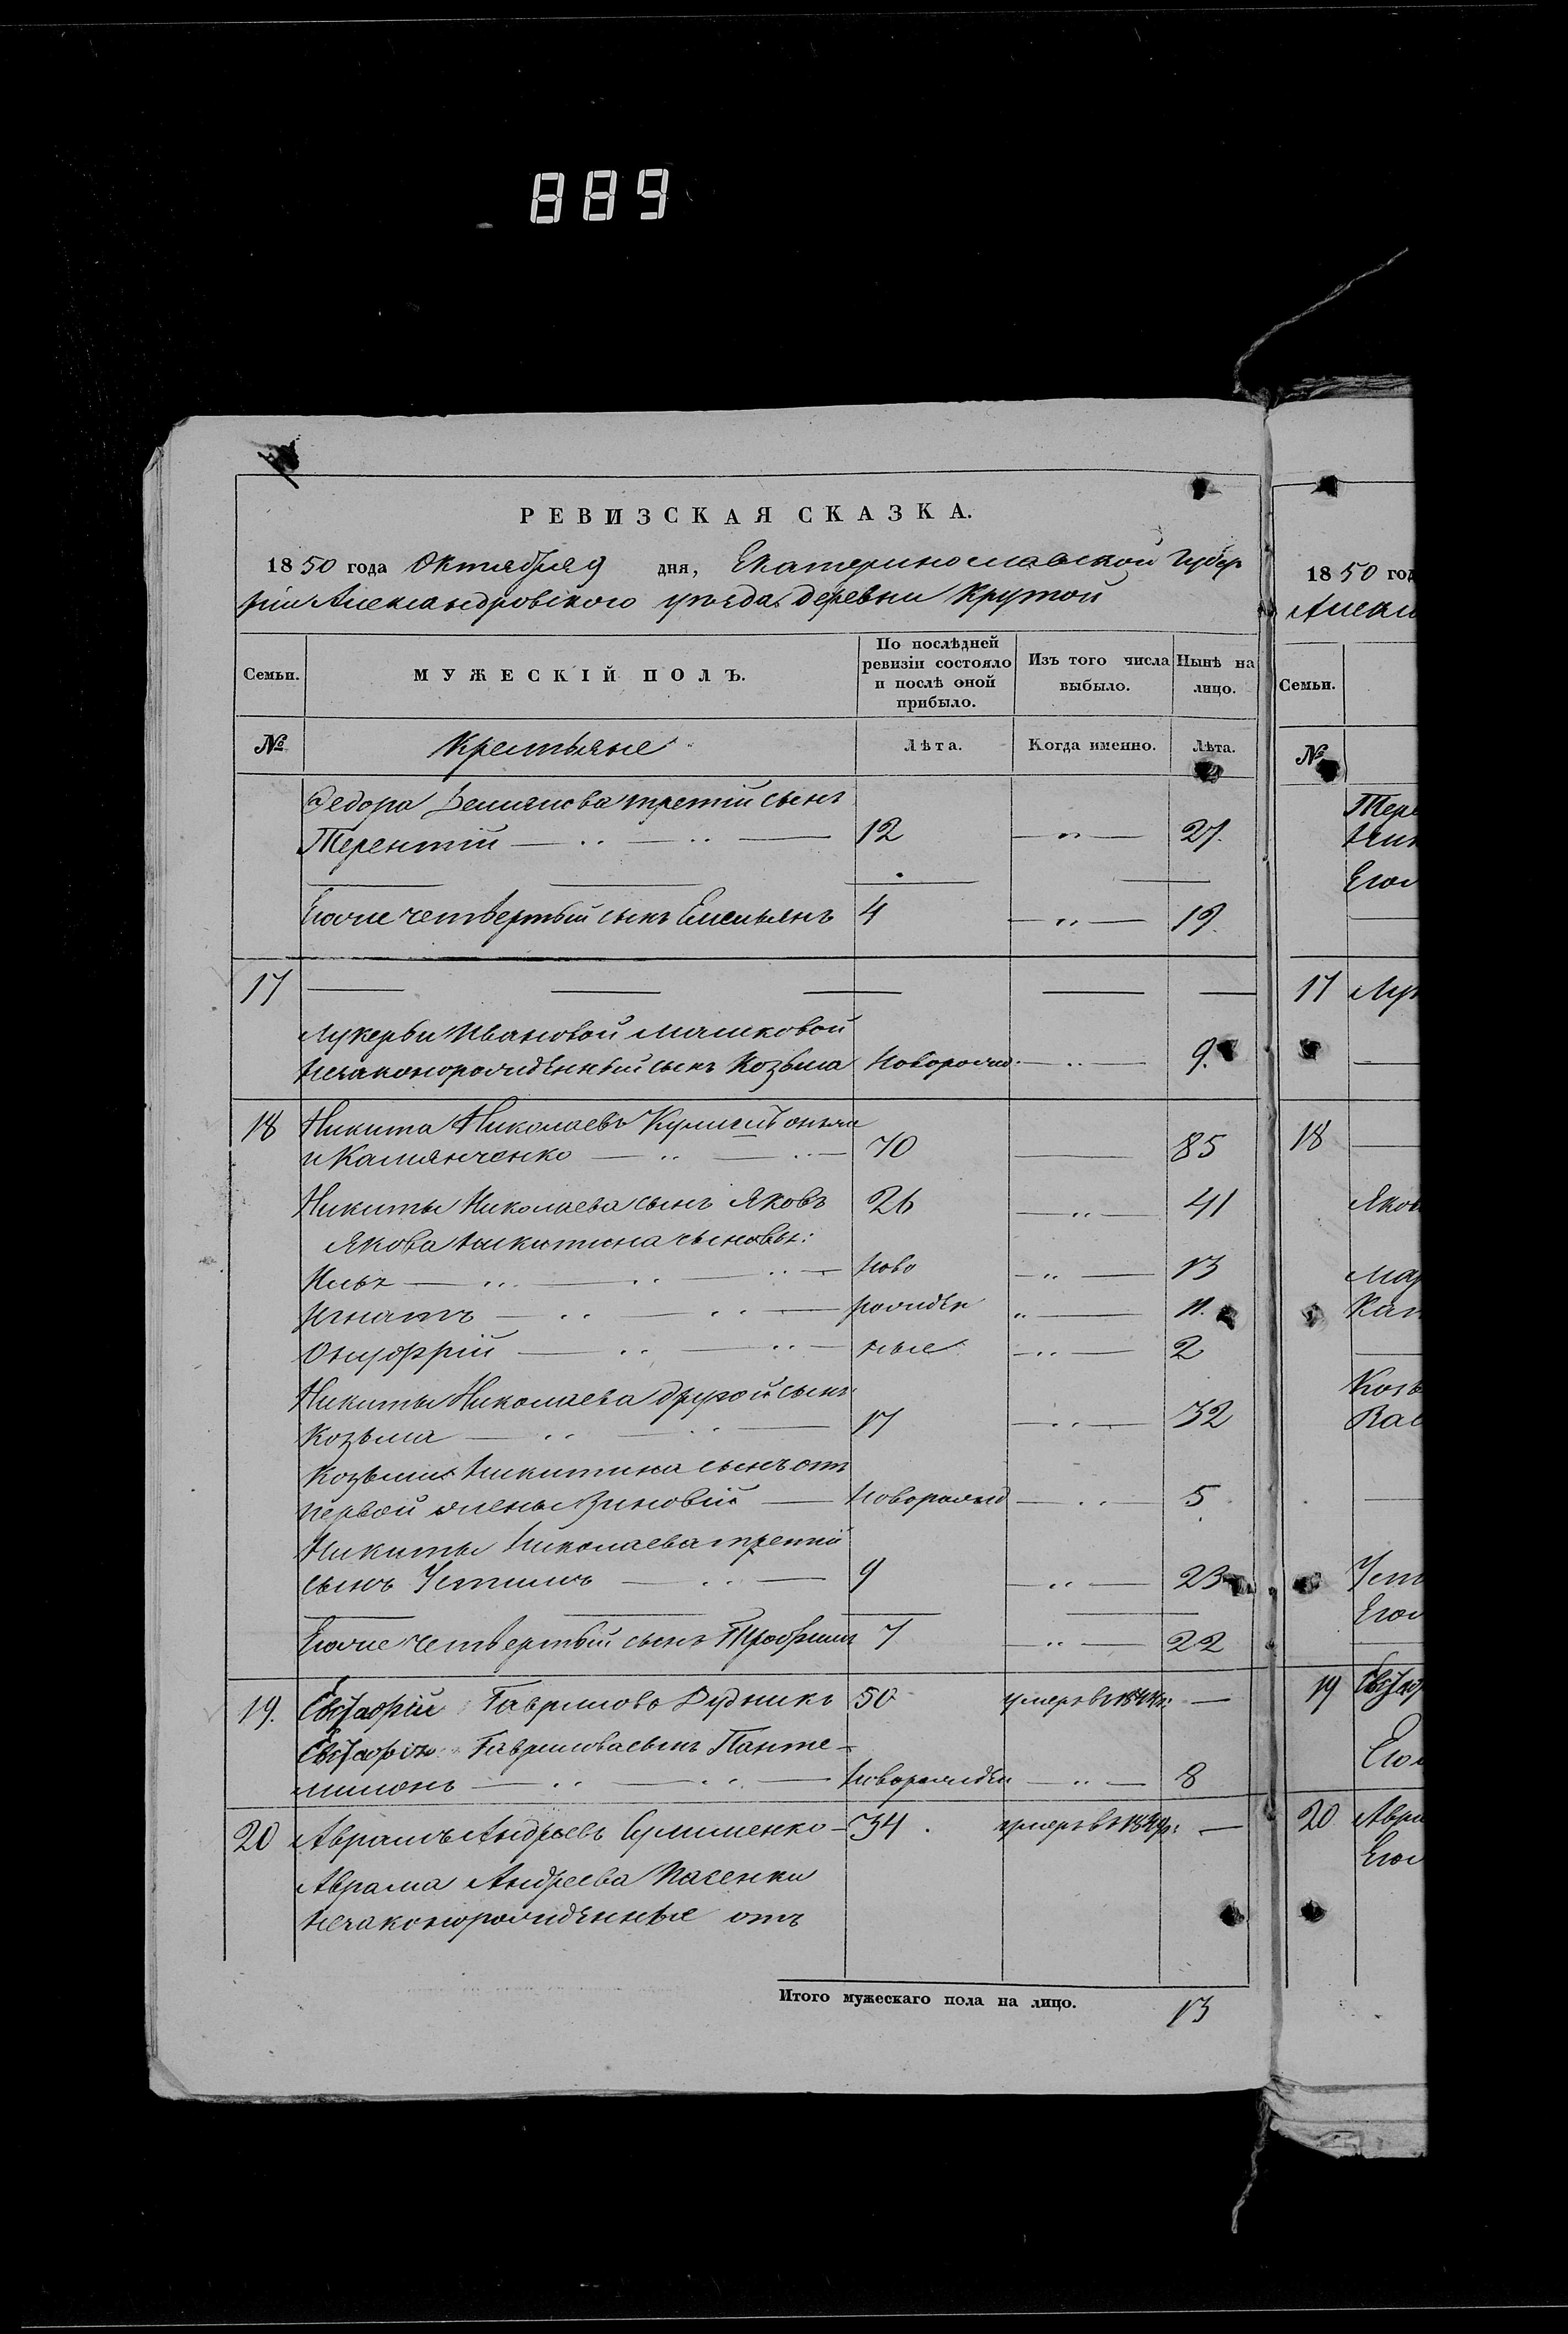 889
РЕВИЗСКАЯ СКАЗКА.
1850 года Октября 9 дня, Екатеринославской Губер
ніи Александровского уѣзда деревни Крутой
Семьи. МУЖЕСКІЙ ПОЛЪ. По послѣдней ревизіи состояло и послѣ оной прибыло. Изъ того числа выбыло. Нынѣ на лицо.
№ Крестьяне Лѣта. Когда именно. Лѣта.
Федора третій сынъ
Терентій — „ — „ — 12 — „ — 27.
Егоже четвертый сынъ Емельянъ 4 — „ — 19.
17
Лукерьи Ивановой Машковой
незаконорожденный сынъ Козьма Новорожд. — „ — 9.
18 Никита Николаевъ
и Камянченко — „ — „ — 70 — 85
Никиты Николаева сынъ Яковъ 26 — „ — 41
Якова Никитина сыновья:
Илья — „ — „ — „ — Ново — „ — 13
Игнатъ — „ — „ — рожден „ — 11.
Онуфрій — „ — „ — ные — „ — 2
Никиты Николаева другой сынъ
Козьма — „ — „ — 17 — „ — 32
Козьмы Никитина сынъ отъ
первой жены Зиновій — Новорожд — „ — 5
Никиты Николаева третій
сынъ Устимъ — „ — 9 — „ — 23
Егоже четвертый сынъ Трофимъ 7 — „ — 22
19. Гавриловъ Рудникъ 50 умеръ въ 1844г: —
Гаврилова сынъ Панте-
лимонъ — „ — „ — Новорожден — „ — 8
20 Аврамъ Андреевъ — 34. умеръ въ —
Аврама Андреева
незаконорожденные отъ
Итого мужескаго пола на лицо. 13
1850 год
Алекс
Семьи.
№
Тере
Егож
17 Лук
18
Яков
Мар
Кат
Козь
Вас
Уст
Егож
19
Его
20 Авра
Егож